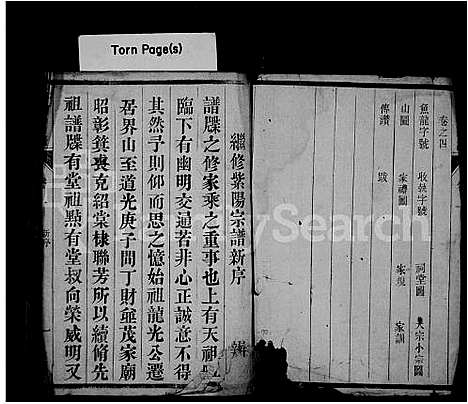 Torn Page(s)
卷之四
魚龍字號 收執字號 祠堂圖 大宗小宗圖
山圖 家禮圖 家規 家訓
傳讚 跋
繼修紫陽宗譜新序
譜牒之修家乘之重事也上有天祖
臨下有幽明交通若非心正誠意不得
其然予則仰而思之憶始祖龍光公遷
居界山至道光庚子間丁財竝茂家廟
昭彰箕裘克紹棠棣聯芳所以續脩先
祖譜牒有堂祖點有堂叔向榮威明又
新序